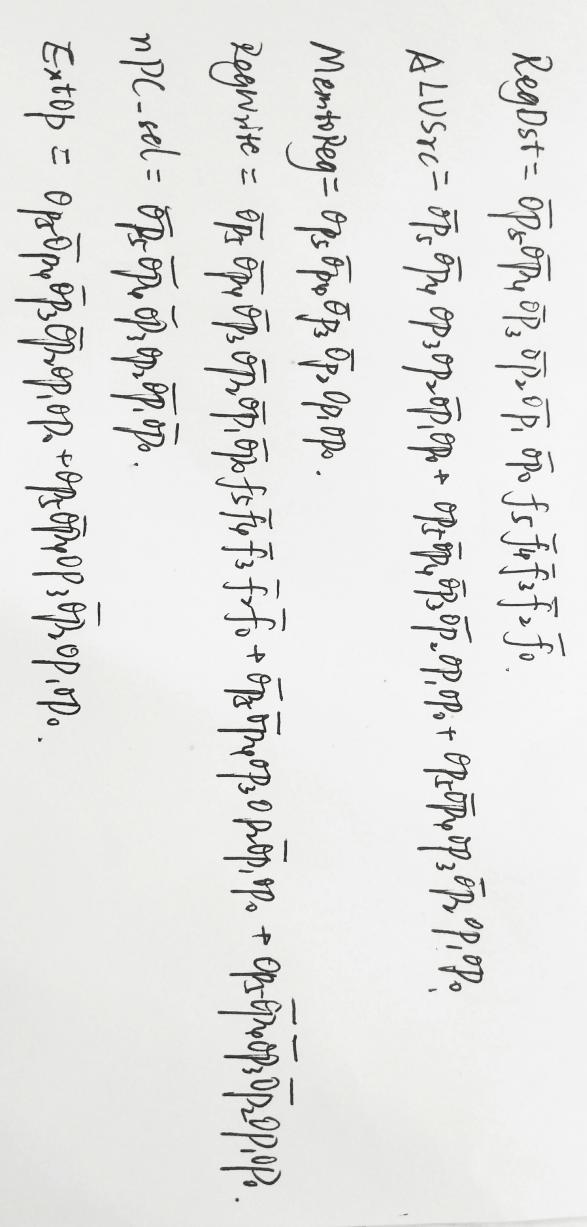 RegDst = o̅p̅₅ o̅p̅₄ o̅p̅₃ o̅p̅₂ o̅p̅₁ o̅p̅₀ f₅ f̅₄ f̅₃ f̅₂ f̅₀.
ALUSrc = o̅p̅₅ o̅p̅₄ op₃ op₂ o̅p̅₁ op₀ + op₅ o̅p̅₄ o̅p̅₃ o̅p̅₂ op₁ op₀ + op₅ o̅p̅₄ op₃ o̅p̅₂ op₁ op₀.
MemtoReg = op₅ o̅p̅₄ o̅p̅₃ o̅p̅₂ op₁ op₀.
RegWrite = o̅p̅₅ o̅p̅₄ o̅p̅₃ o̅p̅₂ o̅p̅₁ o̅p̅₀ f₅ f̅₄ f̅₃ f̅₂ f̅₀ + o̅p̅₅ o̅p̅₄ op₃ op₂ o̅p̅₁ op₀ + op₅ o̅p̅₄ o̅p̅₃ o̅p̅₂ op₁ op₀.
nPC_sel = o̅p̅₅ o̅p̅₄ o̅p̅₃ op₂ o̅p̅₁ o̅p̅₀.
ExtOp = op₅ o̅p̅₄ o̅p̅₃ o̅p̅₂ op₁ op₀ + op₅ o̅p̅₄ op₃ o̅p̅₂ op₁ op₀.